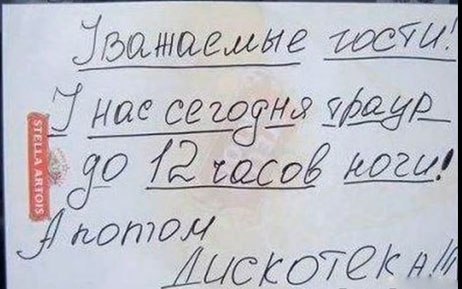 Уважаемые гости!
У нас сегодня траур
до 12 часов ночи!
А потом
Дискотека!!!
STELLA ARTOIS